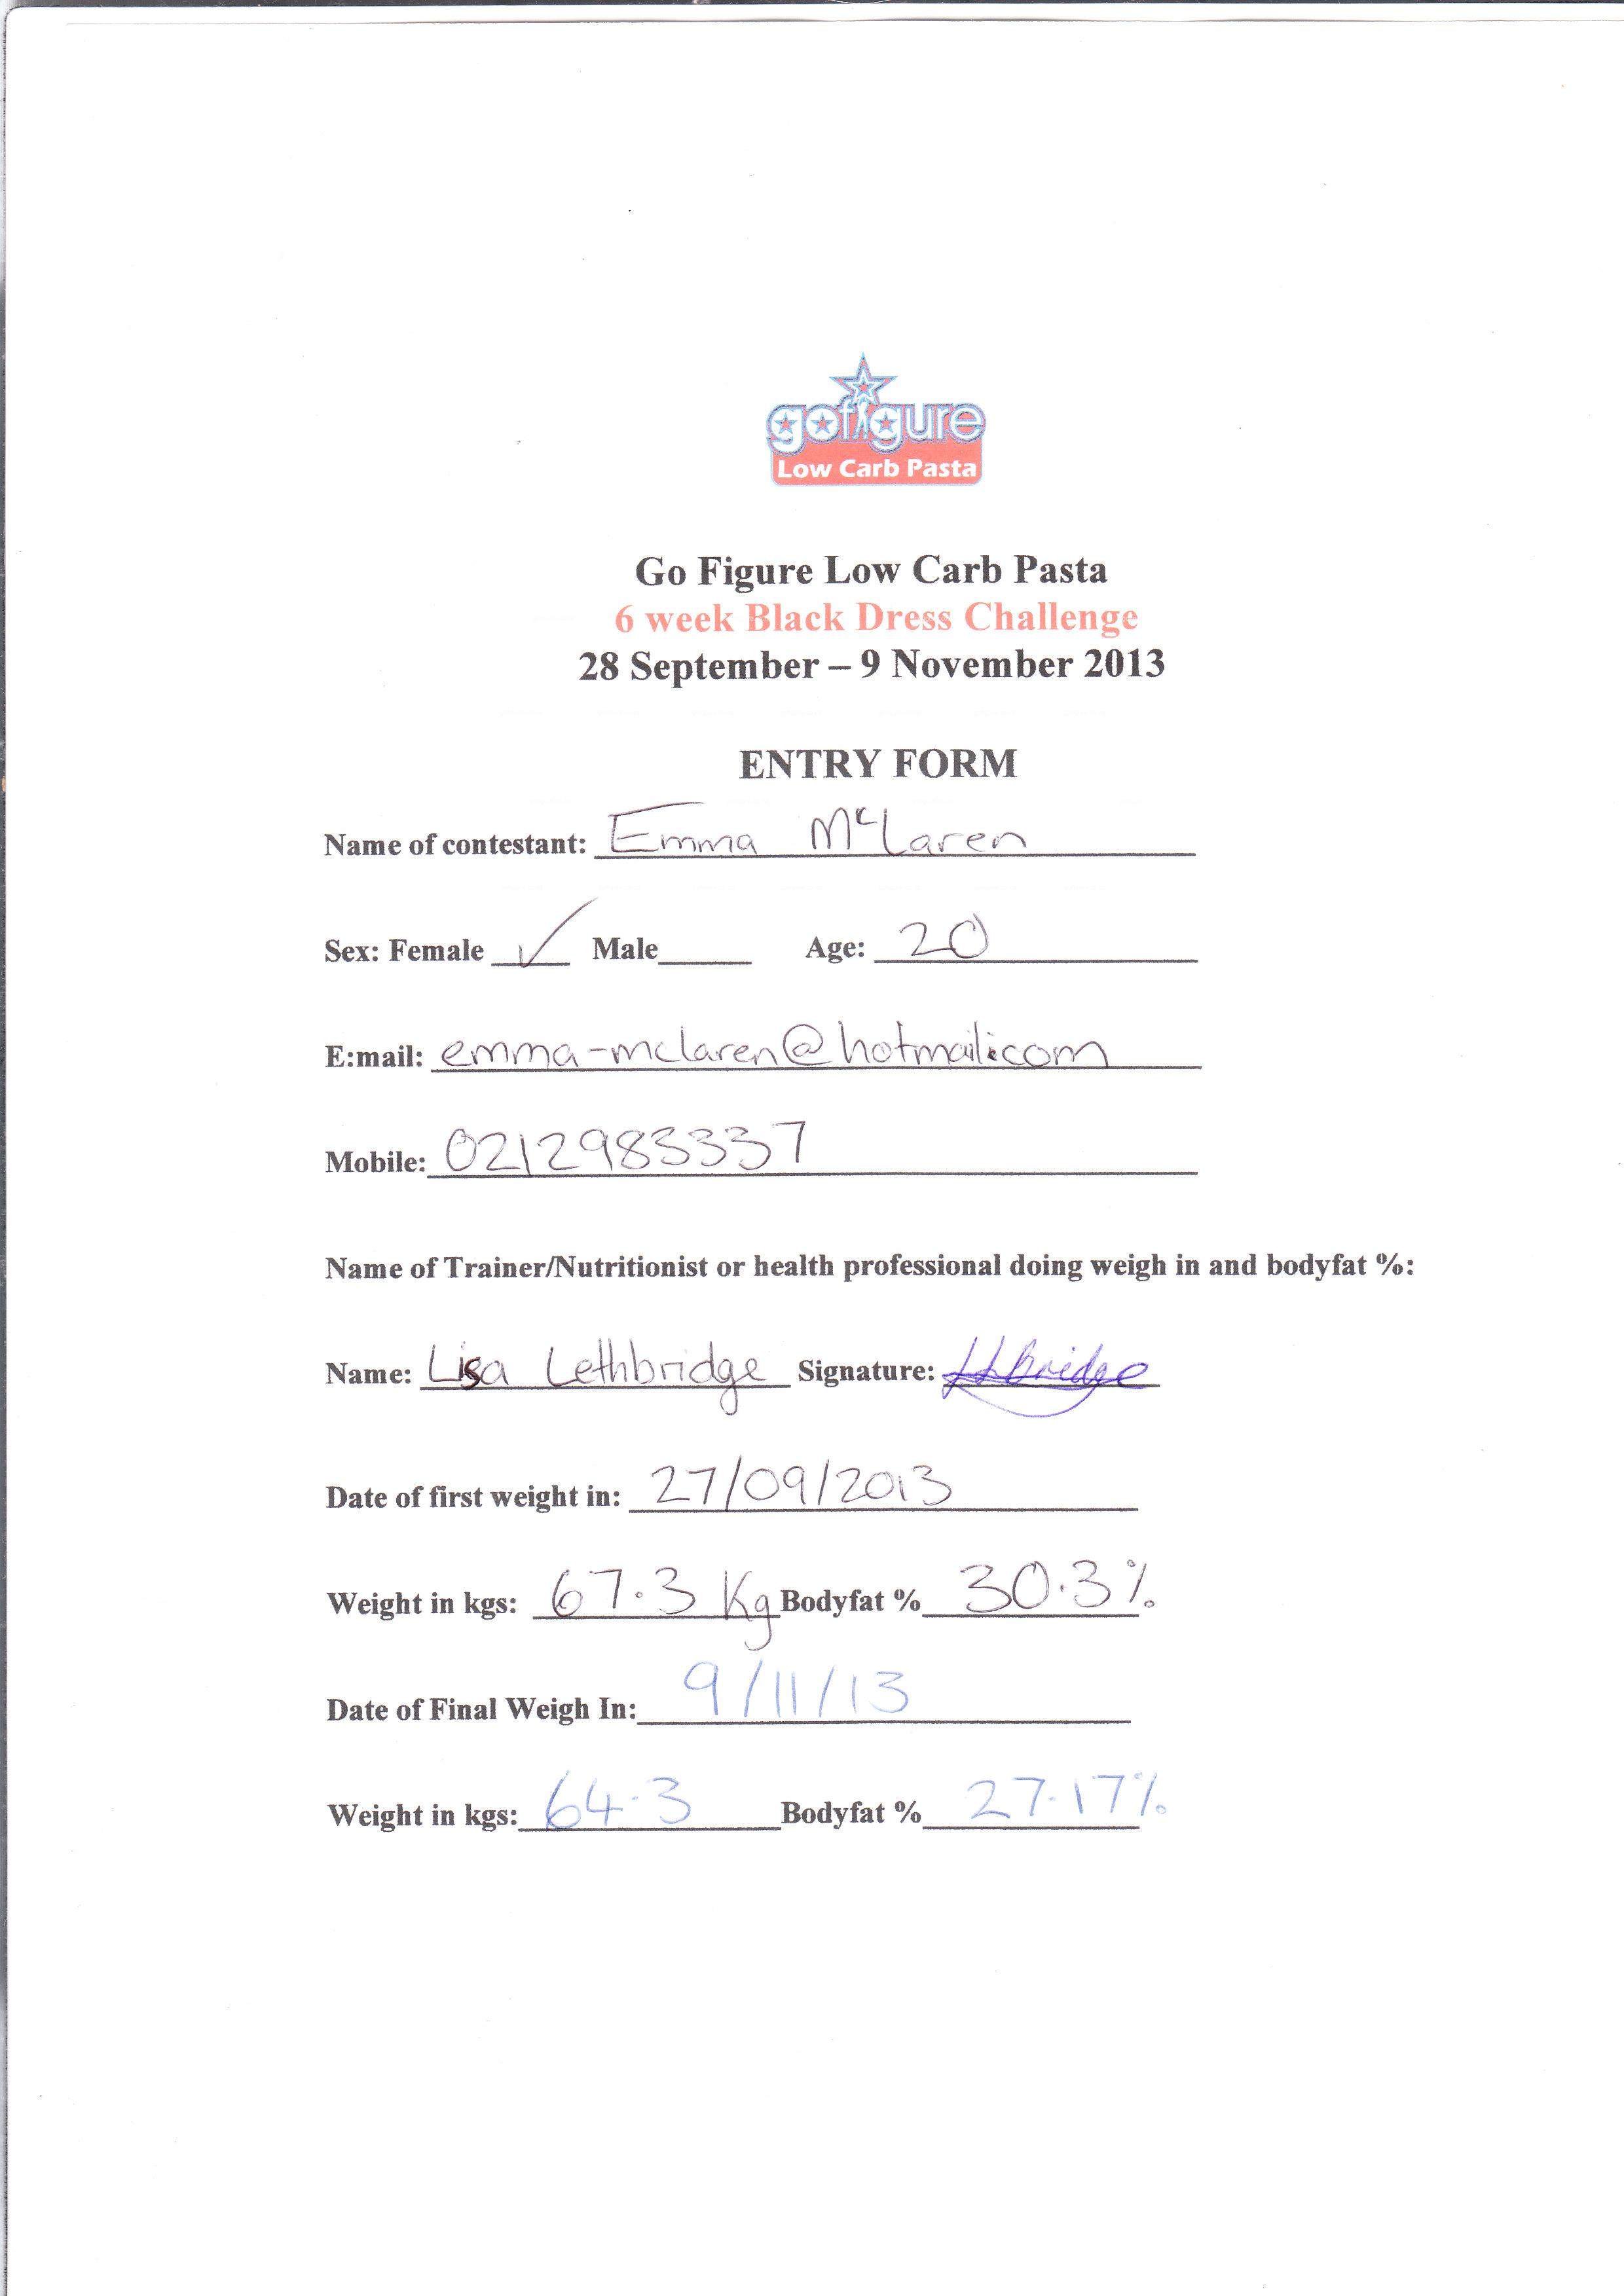 gofigure
Low Carb Pasta
Go Figure Low Carb Pasta
6 week Black Dress Challenge
28 September – 9 November 2013
ENTRY FORM
Name of contestant: Emma McLaren
Sex: Female ✓ Male Age: 20
E:mail: emma-mclaren@hotmail.com
Mobile: 0212983337
Name of Trainer/Nutritionist or health professional doing weigh in and bodyfat %:
Name: Lisa Lethbridge Signature: LLBridge
Date of first weight in: 27/09/2013
Weight in kgs: 67.3 Kg Bodyfat % 30.3%
Date of Final Weigh In: 9/11/13
Weight in kgs: 64.3 Bodyfat % 27.17%